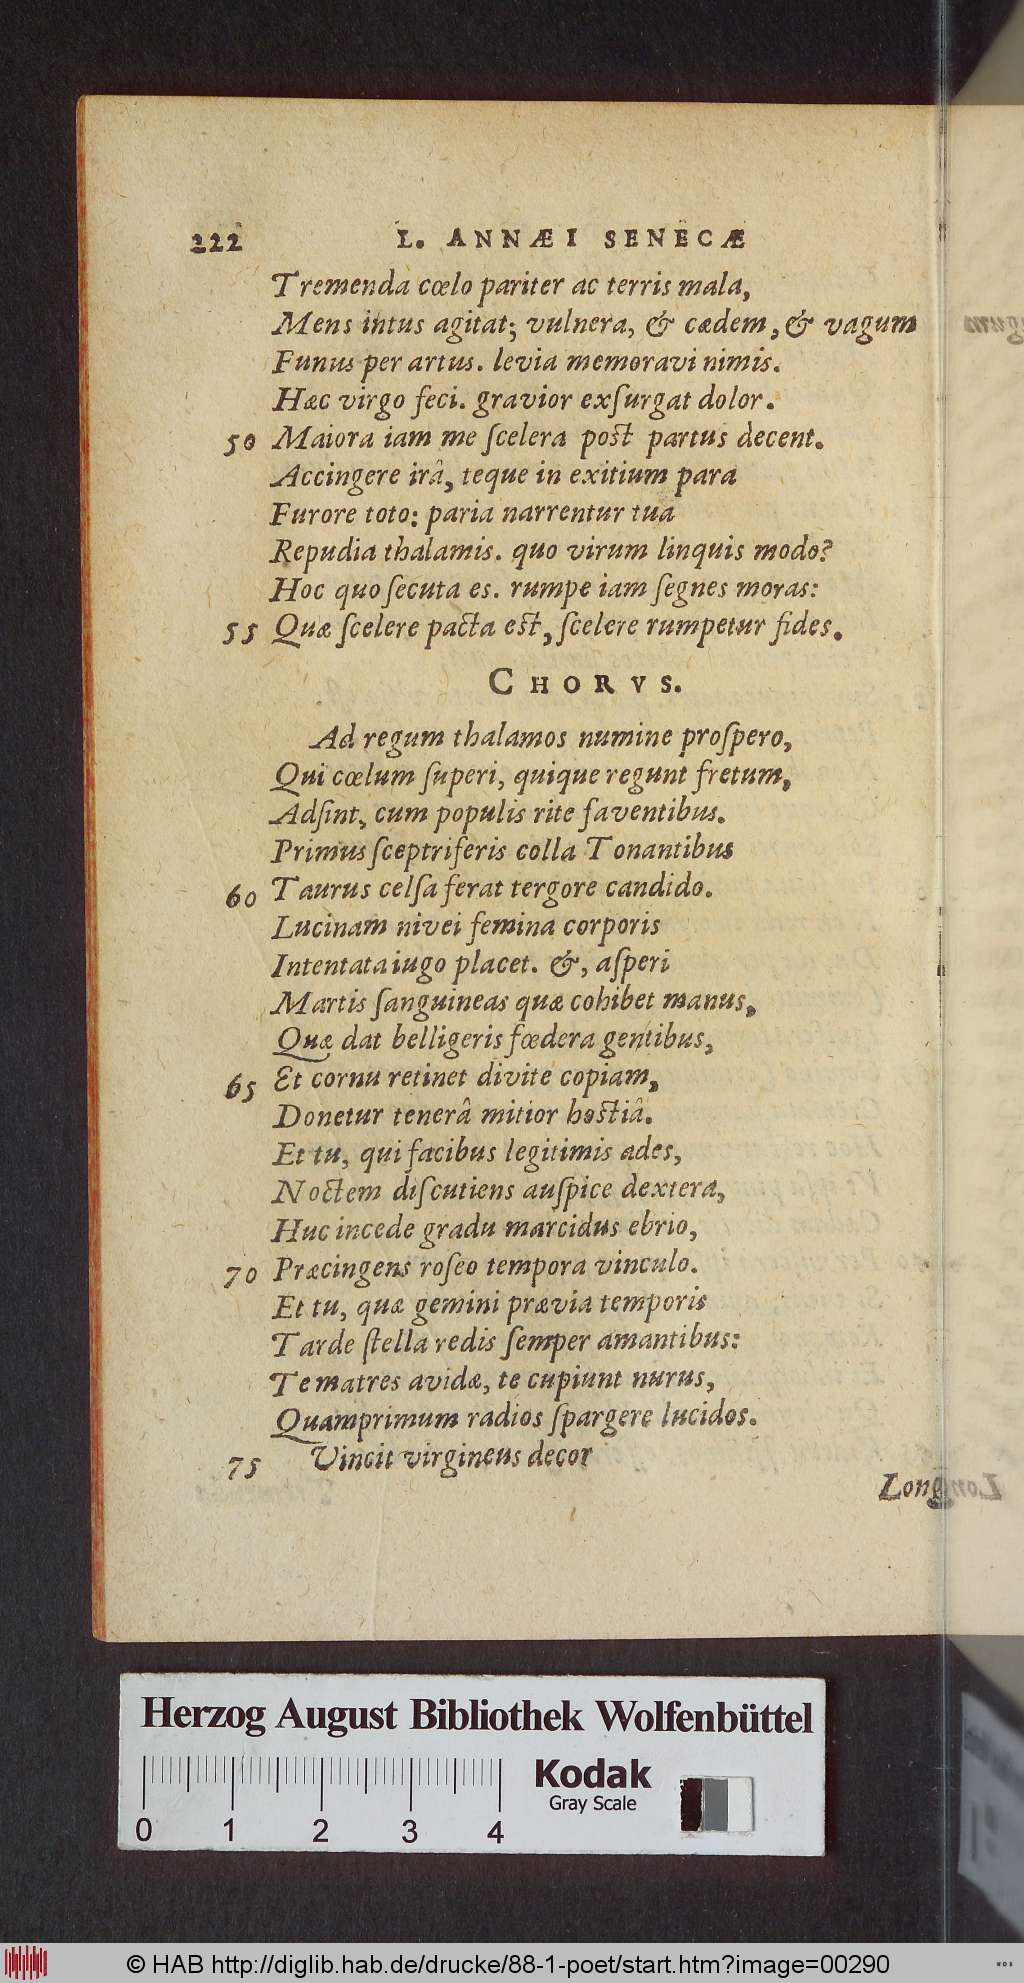 222 L. ANNÆI SENECÆ
Tremenda cœlo pariter ac terris mala,
Mens intus agitat; vulnera, & cædem, & vagum
Funus per artus. levia memoravi nimis.
Hæc virgo feci. gravior exſurgat dolor.
50 Maiora iam me ſcelera post partus decent.
Accingere irâ, teque in exitium para
Furore toto: paria narrentur tua
Repudia thalamis. quo virum linquis modo?
Hoc quo ſecuta es. rumpe iam ſegnes moras:
55 Quæ ſcelere pacta est, ſcelere rumpetur fides.
CHORVS.
Ad regum thalamos numine proſpero,
Qui cœlum ſuperi, quique regunt fretum,
Adſint, cum populis rite faventibus.
Primus ſceptriferis colla Tonantibus
60 Taurus celſa ferat tergore candido.
Lucinam nivei femina corporis
Intentata iugo placet. &, aſperi
Martis ſanguineas quæ cohibet manus,
Quæ dat belligeris fœdera gentibus,
65 Et cornu retinet divite copiam,
Donetur tenerâ mitior hostiâ.
Et tu, qui facibus legitimis ades,
Noctem diſcutiens auſpice dextera,
Huc incede gradu marcidus ebrio,
70 Præcingens roſeo tempora vinculo.
Et tu, quæ gemini prævia temporis
Tarde ſtella redis ſemper amantibus:
Te matres avidæ, te cupiunt nurus,
Quamprimum radios ſpargere lucidos.
75 Vincit virgineus decor
Long
Herzog August Bibliothek Wolfenbüttel
Kodak
Gray Scale
0 1 2 3 4
© HAB http://diglib.hab.de/drucke/88-1-poet/start.htm?image=00290